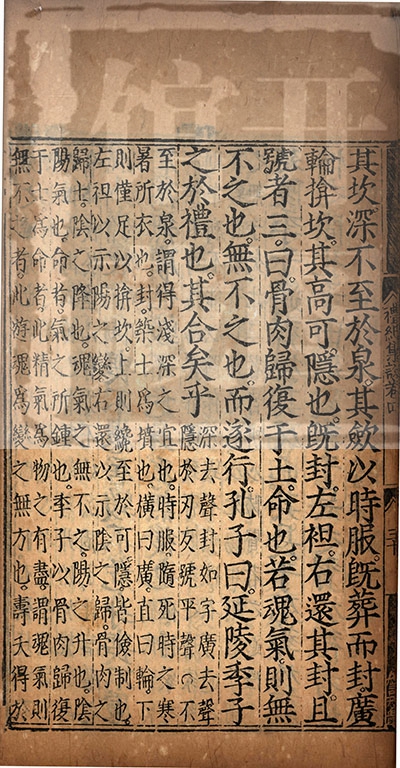 禮記集說卷四
其坎深不至於泉。其歛以時服。旣葬而封。廣
輪揜坎。其高可隱也。旣封。左袒。右還其封。且
號者三。曰。骨肉歸復于土。命也。若魂氣。則無
不之也。無不之也。而遂行。孔子曰。延陵季子
之於禮也。其合矣乎
深去聲封如字廣去聲
隱於刃反號平聲○不
至於泉。謂得淺深之宜也。時服。隨死時之寒
暑所衣也。封。築土爲墳也。橫曰廣。直曰輪。下
則僅足以揜坎。上則纔至於可隱。皆儉制也。
左袒以示陽之變。右還以示陰之歸。骨肉之
歸土。陰之降也。魂氣之無不之。陽之升也。陰
陽氣也。命者。氣之所鍾也。季子以骨肉歸復
于土爲命者。此精氣爲物之有盡。謂魂氣則
無不之者。此遊魂爲變之無方也。壽夭得於